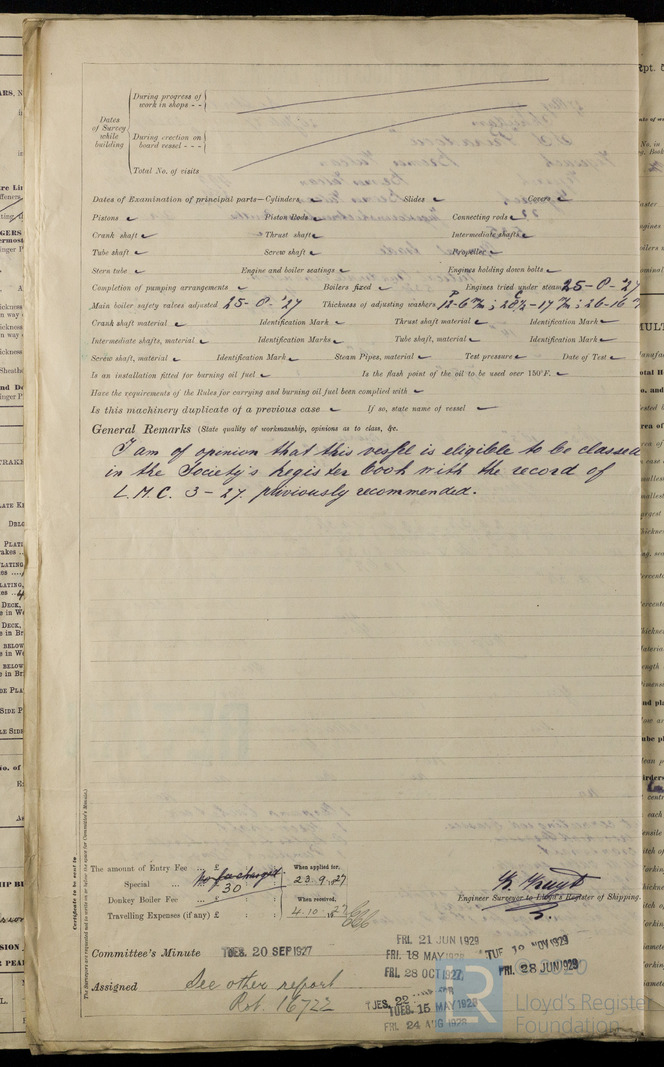 During progress of
work in shops - -
Dates
of Survey
while
building
During erection on
board vessel - - -
Total No. of visits
Dates of Examination of principal parts—Cylinders Slides Covers
Pistons Piston Rods Connecting rods
Crank shaft Thrust shaft Intermediate shafts
Tube shaft Screw shaft Propeller
Stern tube Engine and boiler seatings Engines holding down bolts
Completion of pumping arrangements Boilers fixed Engines tried under steam 25-8-'27
Main boiler safety valves adjusted 25-8-'27 Thickness of adjusting washers
Crank shaft material Identification Mark Thrust shaft material Identification Mark
Intermediate shafts, material Identification Marks Tube shaft, material Identification Mark
Screw shaft, material Identification Mark Steam Pipes, material Test pressure Date of Test
Is an installation fitted for burning oil fuel Is the flash point of the oil to be used over 150°F.
Have the requirements of the Rules for carrying and burning oil fuel been complied with
Is this machinery duplicate of a previous case If so, state name of vessel
General Remarks (State quality of workmanship, opinions as to class, &c.
I am of opinion that this vessel is eligible to be classed
in the Society's Register book with the record of
L.M.C. 3-27 previously recommended.
Certificate to be sent to
The Surveyors are requested not to write on or below the space for Committee's Minute.
The amount of Entry Fee ... £ : : When applied for,
Special ... £ No fee charged 23.9.1927
30
Donkey Boiler Fee ... £ : : When received,
Travelling Expenses (if any) £ : : 4.10.1927
Engineer Surveyor to Lloyd's Register of Shipping.
Committee's Minute TUES. 20 SEP 1927
FRI. 21 JUN 1929
FRI. 18 MAY 1928
TUE 12 NOV 1929
FRI. 28 OCT 1927
FRI. 28 JUN 1929
Assigned See other report
Rpt. 16722
TUES. 22
TUES. 15 MAY 1928
FRI. 24 AUG 1928
© 2020
LR
Lloyd's Register
Foundation